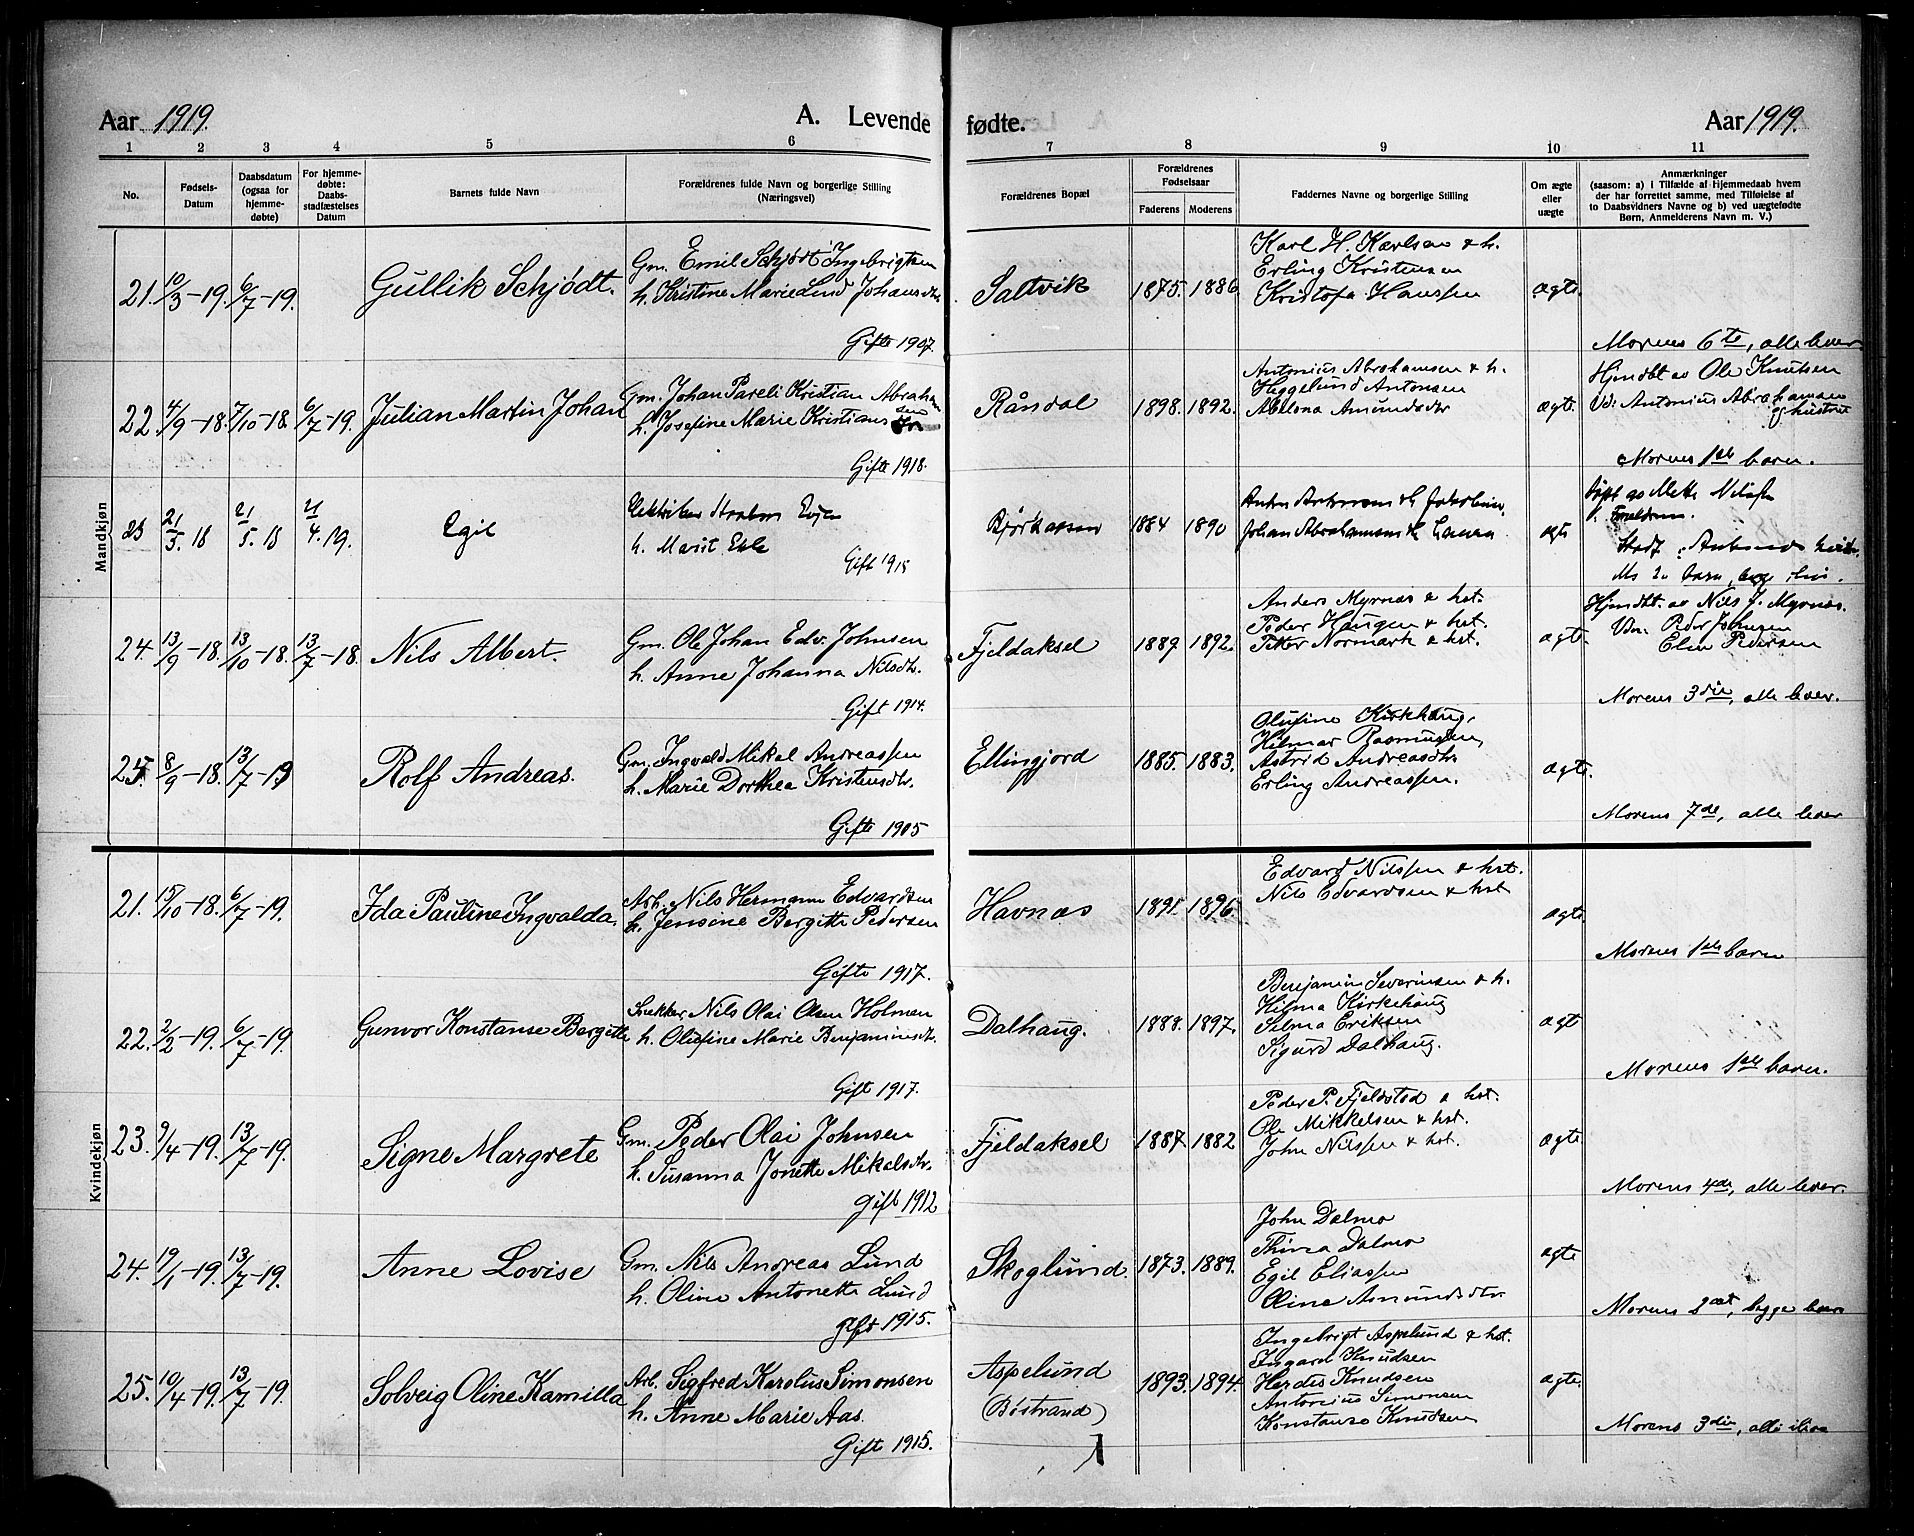 Aar 1919.
A. Levende fødte.
Aar 1919.
1 2 3 4 5 6 7 8 9 10 11
No.
Fødsels-
Datum
Daabsdatum
(ogsaa for
hjemme-
døbte)
For hjemme-
døbte:
Daabs-
stadfæstelses
Datum
Barnets fulde Navn
Forældrenes fulde Navn og borgerlige Stilling
(Næringsvei)
Forældrenes Bopæl
Forældrenes
Fødselsaar
Faderens Moderens
Faddernes Navne og borgerlige Stilling
Om ægte
eller
uægte
Anmærkninger
(saasom: a) i Tilfælde af Hjemmedaab hvem
der har forrettet samme, med Tilføielse af
to Daabsvidners Navne og b) ved uægtefødte
Børn, Anmelderens Navn m. V.)
Mandkjøn
21. 10/3-19. 6/7-19. Gullik Schjødt.
Gm. Emil Schjødt Ingebrigtsen
h. Kristine Marie Lund Johansdtr
Gifte 1907.
Saltvik 1875. 1886
Karl H. Karlsen & h.
Erling Kristensen
Kristofa Hanssen
ægte.
Morens 6te, alle lever
22. 4/9-18. 7/10-18. 6/7-19. Julian Martin Johan
Gm. Johan Pareli Kristian Abraham
sen
h. Josefine Marie Kristians
Gifte 1918.
Råndal 1898. 1892.
Antonius Abrahamsen & h.
Heggelund Antonsen
Amundsdtr
ægte.
Hjemdbt av Ole Knutsen
V: Antonius Abrahamsen
og hustru
Morens 1ste barn.
23 21/3.18 21/5.18 21/4.19. Egil
h. Marit
Gift 1915
Bjørkaasen 1884 1890
Johan Abrahamsen & h. Laura
ægte
døpt av Mette Nilsen
V. Foreldrene.
24. 13/9-18. 13/10-18. 13/7-18. Nils Albert.
Gm. Ole Johan Edv. Johnsen
h. Anne Johanna Nilsdtr.
Gift 1914.
Fjeldaksel 1889 1892.
Anders Myrnæs & hst.
Peder Haugen & hst.
Petter Normark & hst.
ægte.
Hjemdbt. av Nils J. Myrnæs.
Vdn: Peder Johnsen
Elen Pedersen
Morens 3die, alle lever.
25. 8/9-18. 13/7-19 Rolf Andreas.
Gm. Ingvald Mikal Andreassen
h. Marie Dorthea Kristensdtr.
Gifte 1905
Ellingjord 1885. 1883.
Olufine Kirkhaug,
Hilmar Rasmussen,
Astrid Andreasdtr
Erling Andreassen.
ægte.
Morens 7de, alle lever
Kvindekjøn
21. 15/10-18. 6/7-19. Ida Pauline Ingvalda.
Arb. Nils Hermann Edvardsen
h. Jensine Bergitte Pedersen
Gifte 1917.
Havnæs 1891. 1896.
Edvard Nilssen & hst.
Nils Edvardsen & hst
ægte.
Morens 1ste barn
22. 2/2-19. 6/7-19. Gunvor Konstanse Bergitte
Snekker Nils Olai Olsen Holmen
h. Olufine Marie Benjaminsdtr.
Gift 1917.
Dalhaug. 1888. 1897.
Benjamin Severinsen & h.
Hilma Kirkehaug
Selma Eriksen
Sigurd Dalhaug.
ægt
Morens 1ste barn.
23. 9/4-19. 13/7-19. Signe Margrete
Gm. Peder Olai Johnsen
h. Susanna Jonette Mikalsdtr.
gift 1912
Fjeldaksel 1887. 1882.
Peder P. Fjeldstad & hst.
Ole Mikkelsen & hst.
John Nilssen & hst.
ægte
Morens 4de, alle lever.
24. 19/1-19. 13/7-19. Anne Lovise
Gm. Nils Andreas Lund
h. Oline Antonette Lund
gift 1915.
Skoglund. 1873. 1889.
John Dalmo
Thina Dalmo
Egil Eliassen
Oline Amundsdtr.
ægte
Morens 2det, begge lever
25. 10/4-19. 13/7-19. Solveig Oline Kamilla
Arb. Sigfred Karolus Simonsen
h. Anne Marie Aas.
Gift 1915.
Aspelund
(Bøstrand)
1893. 1894.
Ingebrigt Aspelund & hst.
Ingard Knudsen
Herdis Knudsen
Antonius Simonsen
Konstanse Knudsen
ægte.
Morens 3die, alle ilive